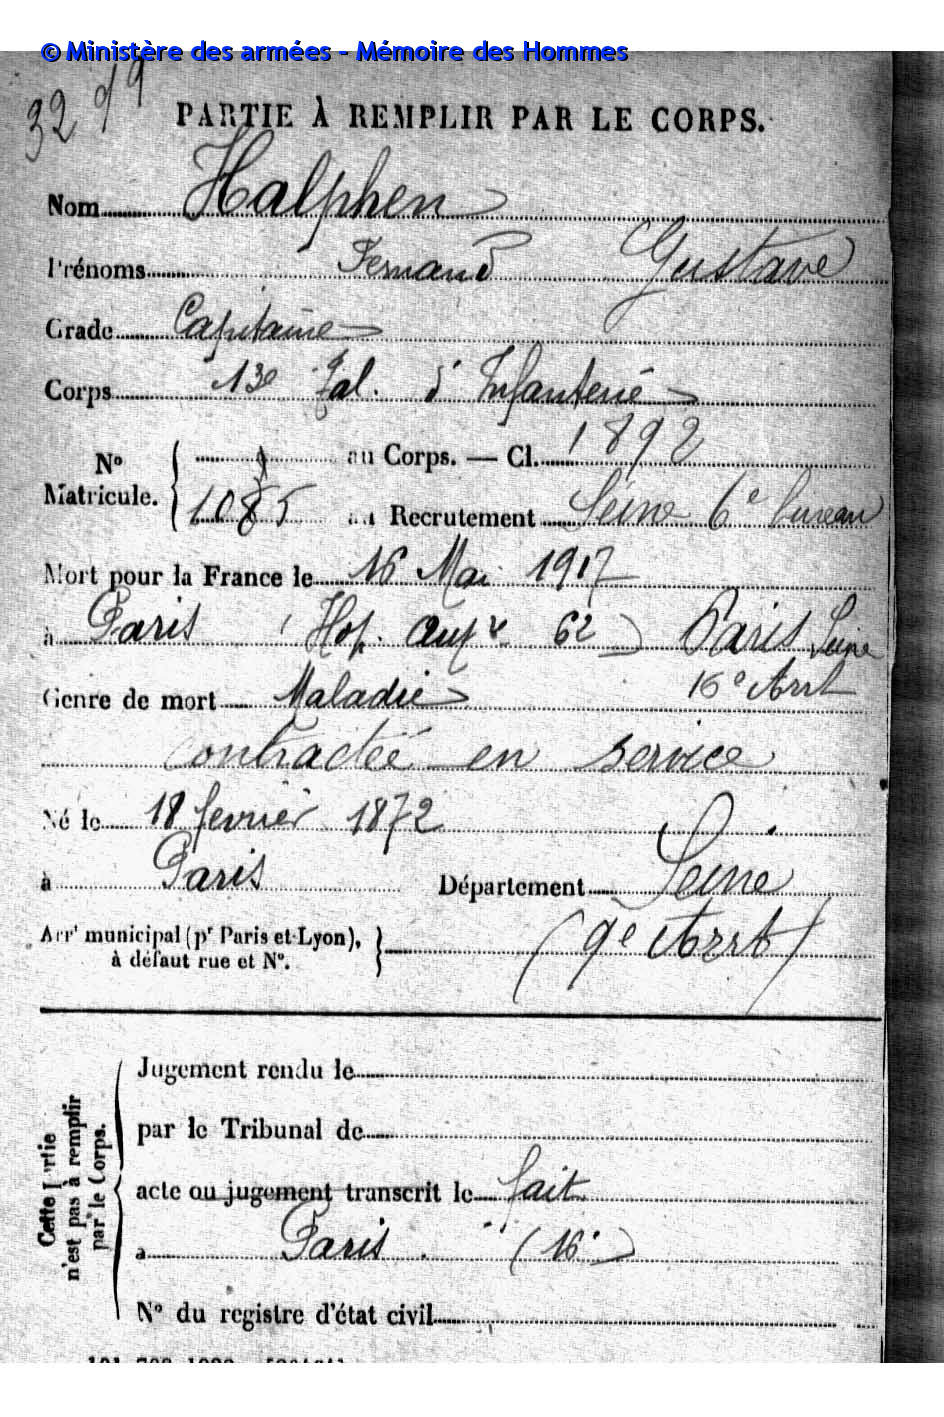 © Ministère des armées - Mémoire des Hommes
32 d 9
PARTIE À REMPLIR PAR LE CORPS.
Nom Halphen
Prénoms Fernand Gustave
Grade Capitaine
Corps 13e Tal. d'Infanterie
au Corps. — Cl. 1892
No Matricule. 1085 au Recrutement Seine 6e bureau
Mort pour la France le 16 Mai 1917
à Paris (Hop. Auxre 62) Paris Seine
16e Arrt
Genre de mort Maladie
contractée en service
Né le 18 fevrier 1872
à Paris Département Seine
Arrt municipal (pr Paris et Lyon), à défaut rue et No. (9e Arrt)
Cette partie n'est pas à remplir par le Corps.
Jugement rendu le
par le Tribunal de
acte ou jugement transcrit le fait
à Paris (16e)
No du registre d'état civil